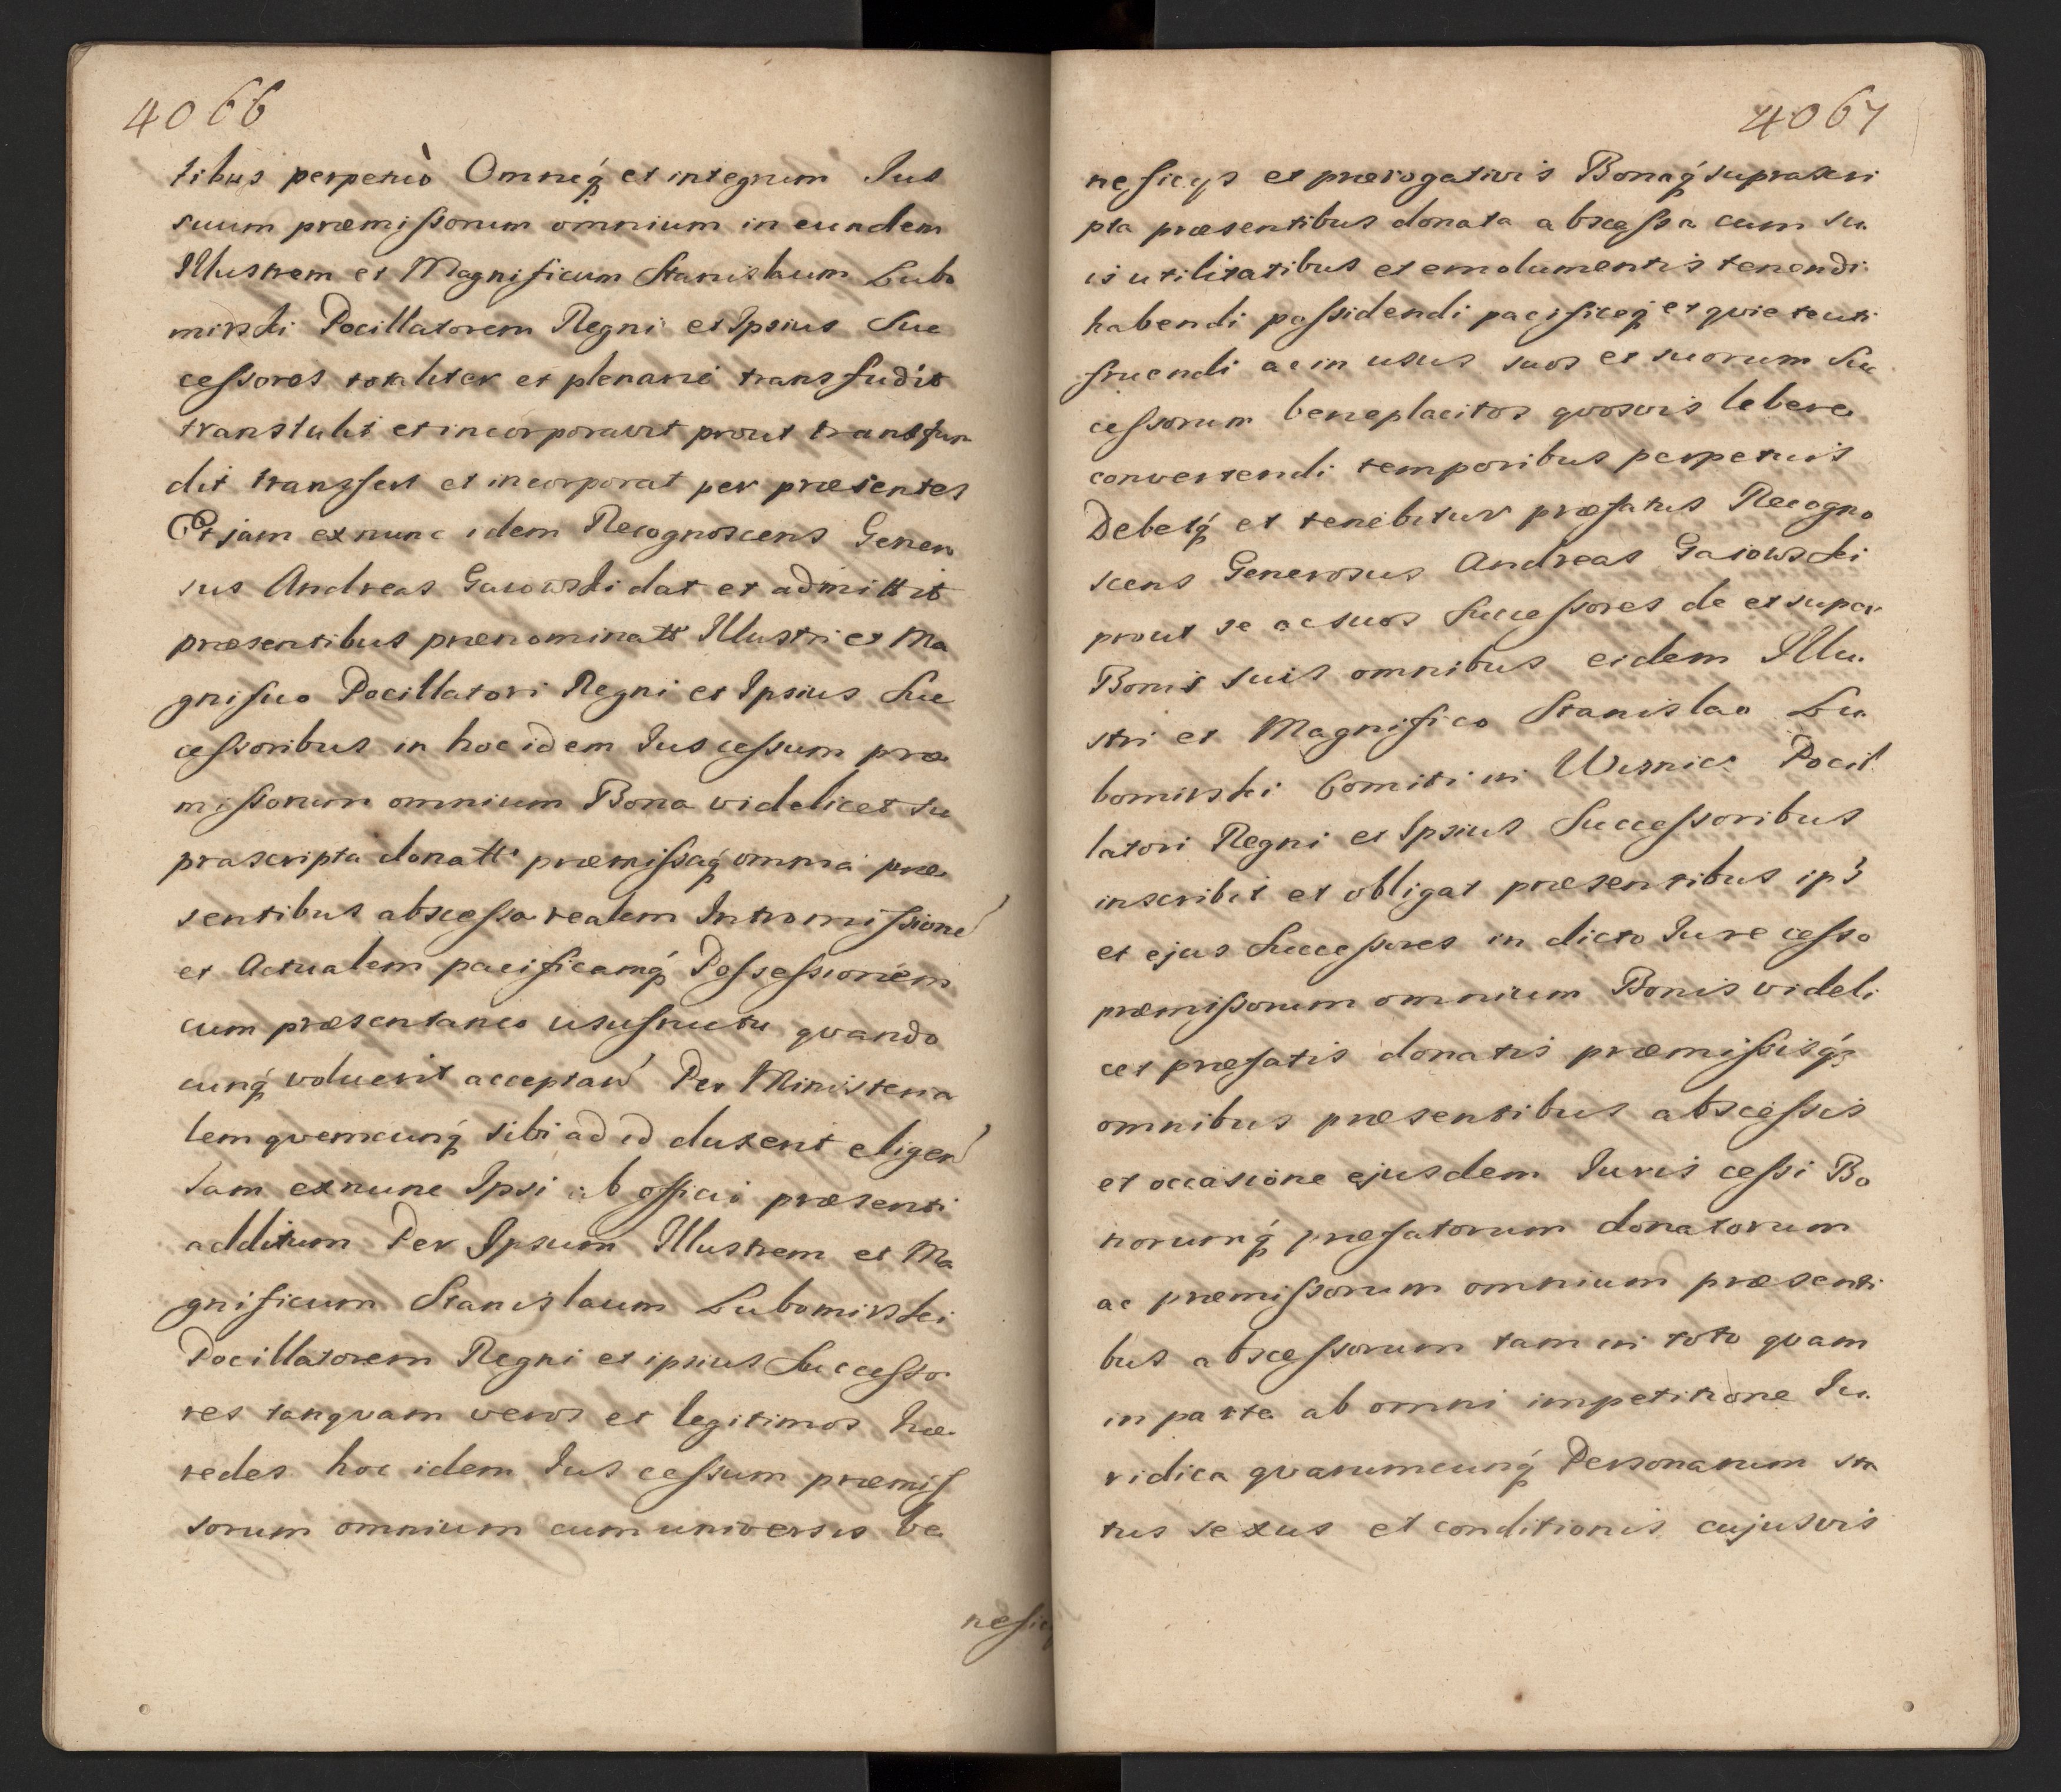 4066
tibus perpetuò Omneq́ et integrum Jus
suum præmissorum omnium in eundem
Illustrem et Magnificum Stanislaum Lubo
mirski Pocillatorem Regni et Ipsius Suc
cessores totaliter et plenarié transfudit
transtulit et incorporavit prout transfun
dit transfert et incorporat per præsentes
Et jam ex nunc idem Recognoscens Genero
sus Andreas Gasowski dat et admittit
præsentibus prænominato Illustri et Ma
gnifico Pocillatori Regni et Ipsius Suc
cessoribus in hoc idem Jus cessum præ
missorum omnium Bona videlicet su
prascripta donatta præmissaq́ omnia præ
sentibus abscessa realem Intromissioné
et Actualem pacificamq́ Possessionem
cum præsentaneo usufructu quando
cunq́ voluerit acceptań Per Ministeria
lem quemcunq́ sibi ad id duxerit eligeń
Jam ex nunc Ipsi ab officio præsenti
additum Per Ipsum Illustrem et Ma
gnificum Stanislaum Lubomirski
Pocillatorem Regni et ipsius Successo
res tanquam veros et legitimos hæ
redes hoc idem Jus cessum præmis
sorum omnium cum universis be
nefic
4067
neficys et prærogativis Bonaq́ suprascri
pta præsentibus donata abscessa cum su
is utilitatibus et emolumentis tenendi
habendi possidendi pacificeq́ et quiete uti
fruendi ac in usus suos et suorum Suc
cessorum beneplacitos quosvis lebere
convertendi temporibus perpetuis
Debetq́ et tenebitur præfatus Recogno
scens Generosus Andreas Gasowski
prout se ac suos Successores de et super
Bonis suis omnibus eidem Illu
stri et Magnifico Stanislao Lu
bomirski Comiti in Wisnicz Pocil
latori Regni et Ipsius Successoribus
inscribit et obligat præsentibus ip̃3
et ejus Successores in dicto Jure cesso
præmissorum omnium Bonis videli
cet præfatis donatis præmissisq́3
omnibus præsentibus abscessis
et occasione ejusdem Juris cessi Bo
norumq́ præfatorum donatorum
ac præmissorum omnium præsenti
bus abscessorum tam in toto quam
in parte ab omni impetitione Ju
ridica quarumcunq́ Personarum sta
tus sexus et conditionis cujusvis